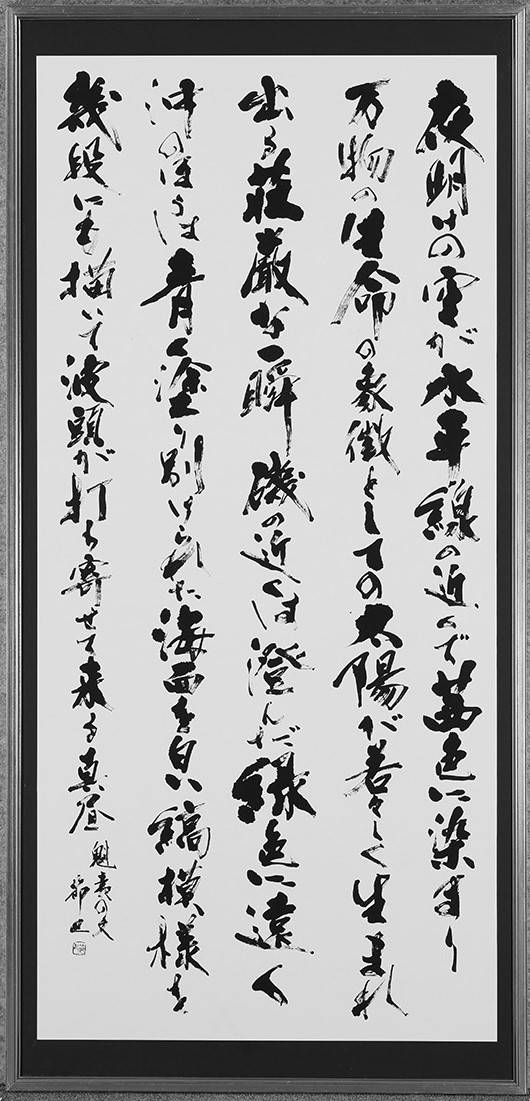 夜明けの空が水平線の近くで茜色に染まり
万物の生命の象徴としての太陽が若々しく生まれ
出る荘厳な一瞬磯の近くは澄んだ緑色に遠く
沖のほうは青く塗り別けられた海面を白い縞模様を
幾段にも描いて波頭が打ち寄せて来る真昼
魁夷の文